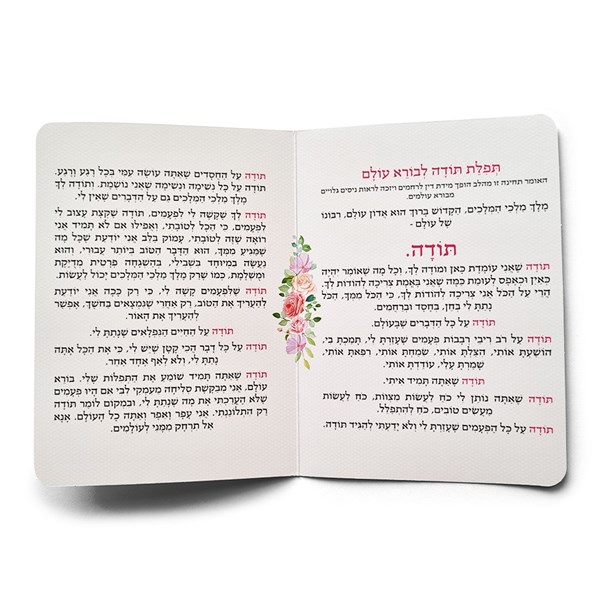 תפלת תודה לבורא עולם
האומר תחינה זו מהלב הופך מידת דין לרחמים ויזכה לראות ניסים גלויים
מבורא עולמים.
מלך מלכי המלכים, הקדוש ברוך הוא אדון עולם, רבונו
של עולם -
תודה.
תודה שאני עומדת כאן ומודה לך, וכל מה שאומר יהיה
כאין וכאפס לעומת כמה שאני באמת צריכה להודות לך.
הרי על הכל אני צריכה להודות לך, כי הכל ממך, הכל
נתת לי בחן, בחסד וברחמים.
תודה על כל הדברים שבעולם.
תודה על רב ריבי רבבות פעמים שעזרת לי, תמכת בי,
הושעת אותי, הצלת אותי, שמחת אותי, רפאת אותי,
שמרת עלי, עודדת אותי.
תודה שאתה תמיד איתי.
תודה שאתה נותן לי כח לעשות מצוות, כח לעשות
מעשים טובים, כח להתפלל.
תודה על כל הפעמים שעזרת לי ולא ידעתי להגיד תודה.
תודה על החסדים שאתה עושה עמי בכל רגע ורגע.
תודה על כל נשימה ונשימה שאני נושמת. ותודה לך
מלך מלכי המלכים גם על הדברים שאין לי.
תודה לך שקשה לי לפעמים, תודה שקצת עצוב לי
לפעמים, כי הכל לטובתי, ואפילו אם לא תמיד אני
רואה שזה לטובתי, עמוק בלב אני יודעת שכל מה
שמגיע ממך, הוא הדבר הטוב ביותר עבורי, והוא
נעשה במיוחד בשבילי, בהשגחה פרטית מדויקת
ומושלמת, כמו שרק מלך מלכי המלכים יכול לעשות.
תודה שלפעמים קשה לי, כי רק ככה אני יודעת
להעריך את הטוב, רק אחרי שנמצאים בחשך, אפשר
להעריך את האור.
תודה על החיים הנפלאים שנתת לי.
תודה על כל דבר הכי קטן שיש לי, כי את הכל אתה
נתת לי, ולא לאף אחד אחר.
תודה שאתה תמיד שומע את התפלות שלי. בורא
עולם, אני מבקשת סליחה מעמקי לבי אם היו פעמים
שלא הערכתי את מה שנתת לי, ובמקום לומר תודה
רק התלוננתי. אני עפר ואפר ואתה כל העולם. אנא
אל תרחק ממני לעולמים.